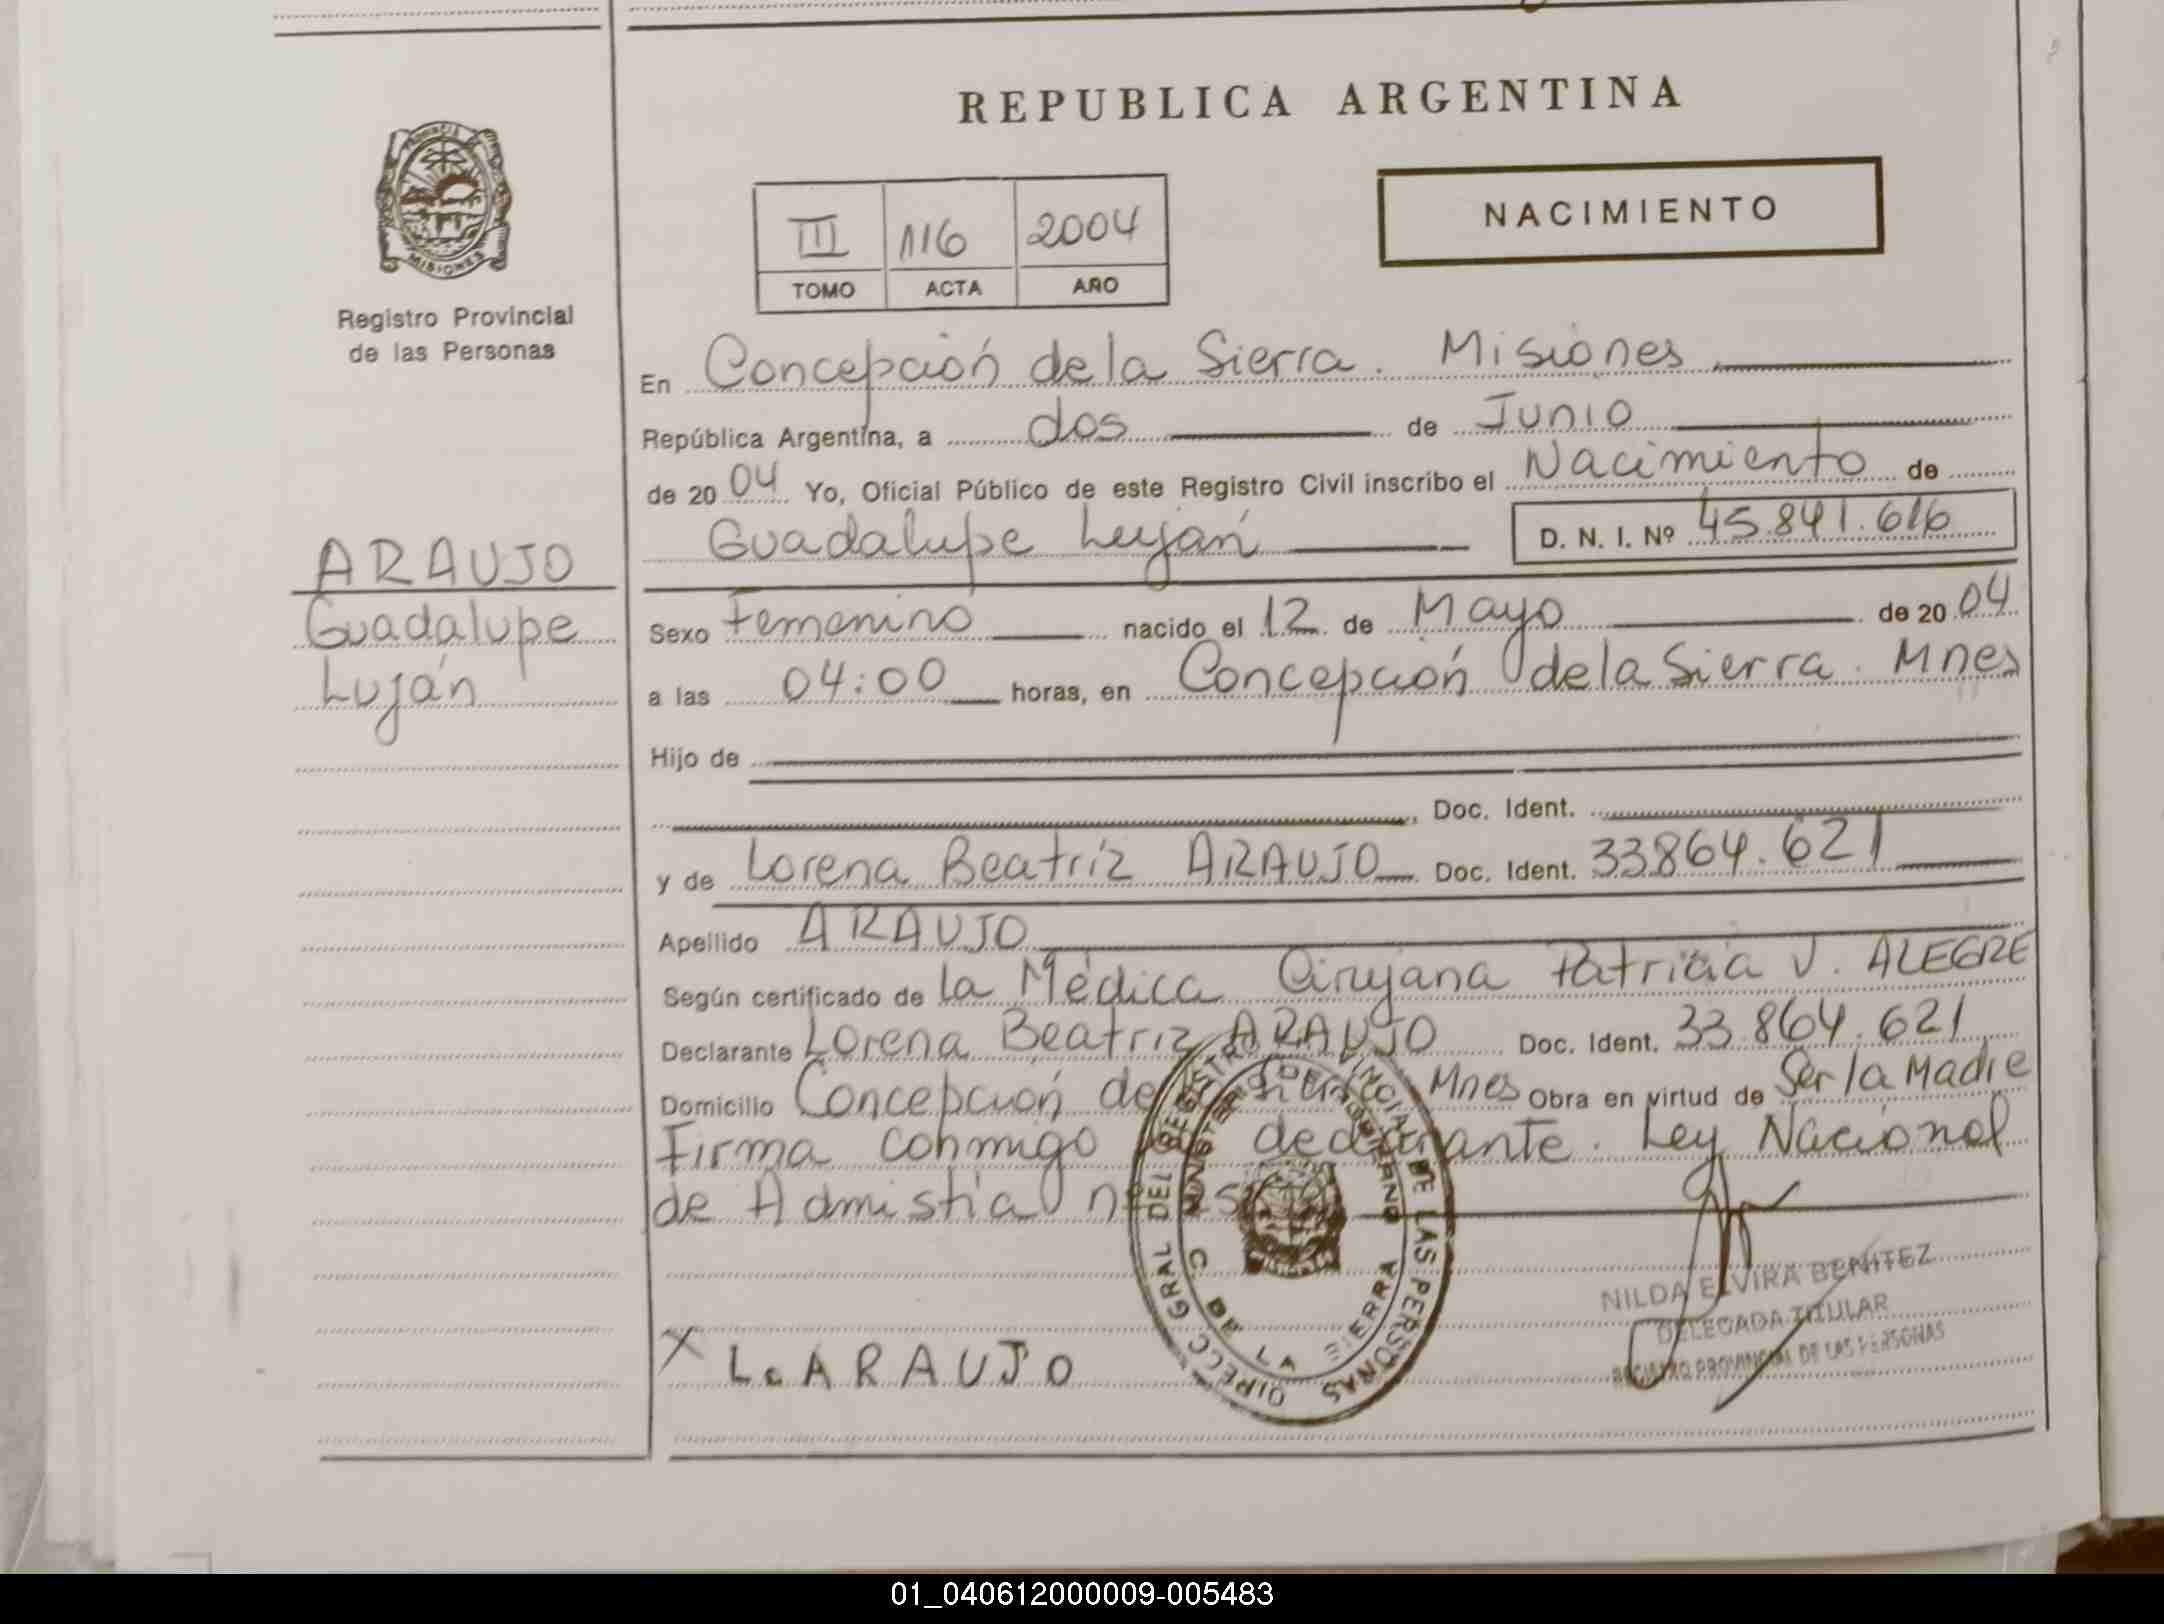 REPUBLICA ARGENTINA
NACIMIENTO
III 116 2004
TOMO ACTA AÑO
PROVINCIA
MISIONES
Registro Provincial
de las Personas
ARAUJO
Guadalupe
Luján
En Concepción de la Sierra. Misiones
República Argentina, a dos de Junio
de 2004 Yo, Oficial Público de este Registro Civil inscribo el Nacimiento de
Guadalupe Luján D. N. I. Nº 45.841.616
Sexo Femenino nacido el 12 de Mayo de 2004
a las 04:00 horas, en Concepción de la Sierra. Mnes
Hijo de
Doc. Ident.
y de Lorena Beatríz ARAUJO Doc. Ident. 33864.621
Apellido ARAUJO
Según certificado de la Médica Cirujana Patricia V. ALEGRE
Declarante Lorena Beatriz ARAUJO Doc. Ident. 33.864.621
Domicilio Concepción de la Sierra Mnes Obra en virtud de Ser la Madre
Firma conmigo declarante. Ley Nacional
de Admistía nº
DIRECC GRAL DEL REGISTRO PROVINCIAL DE LAS PERSONAS
MINISTERIO DE GOBIERNO
C DE LA SIERRA
X L. ARAUJO
NILDA ELVIRA BENITEZ
DELEGADA TITULAR
REGISTRO PROVINCIAL DE LAS PERSONAS
01_040612000009-005483